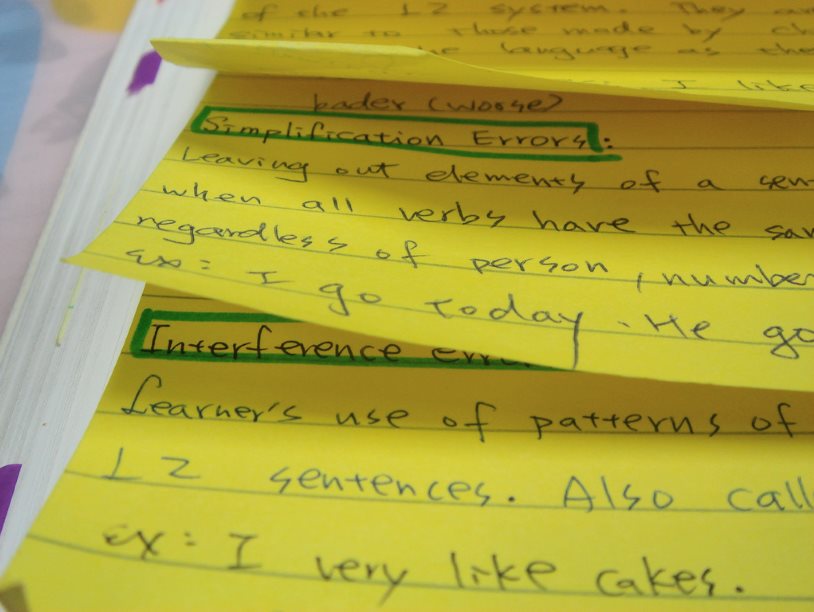 of the L2 system. They
similar to those made by
the language as the
I like
bader (worse)
Simplification Errors:
Leaving out elements of a
when all verbs have the
regardless of person, number
Ex: I go today. He go
Interference
Learner's use of patterns of
L2 sentences. Also
Ex: I very like cakes.